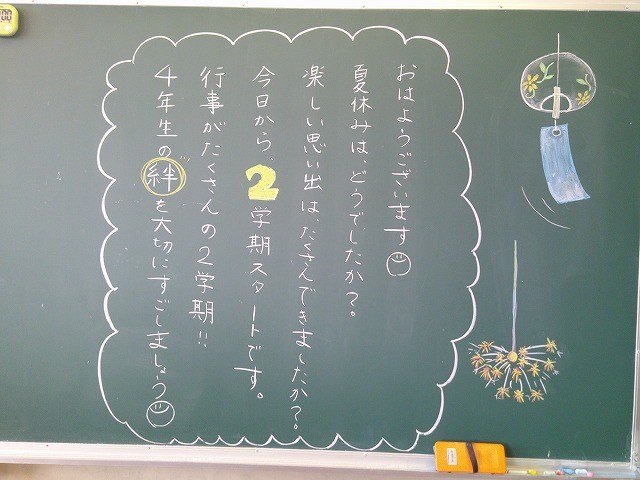 おはようございます
夏休みは、どうでしたか？。
楽しい思い出は、たくさんできましたか？。
今日から、2学期スタートです。
行事がたくさんの2学期!!
4年生の絆を大切にすごしましょう